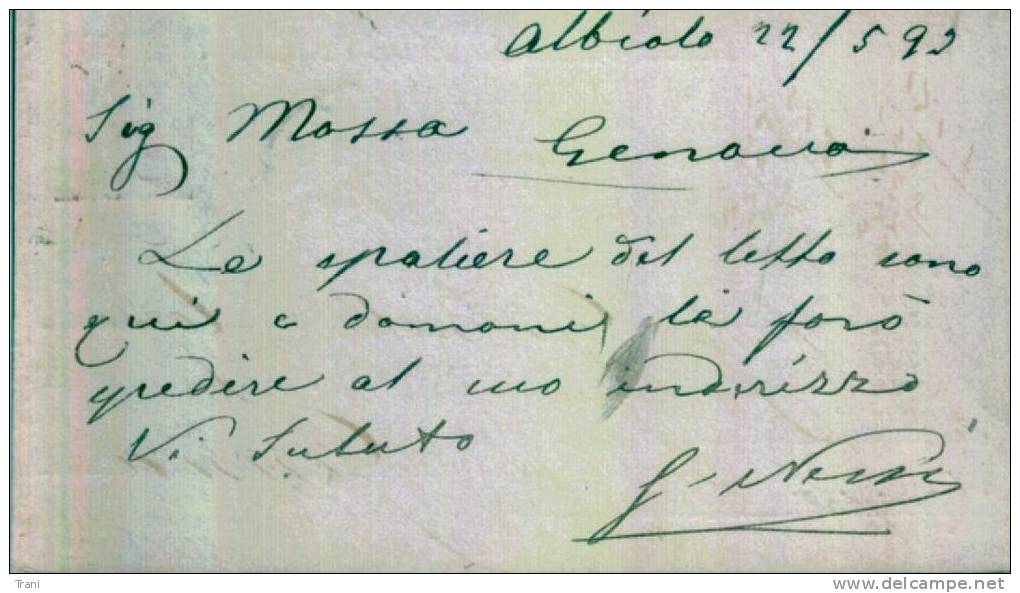 Albiolo 22/5 93
Sig Mossa Genova
Le spaliere del letto sono
qui e domani le farò
spedire al suo indirizzo
Vi Saluto
G. Nessi
Trani
www.delcampe.net